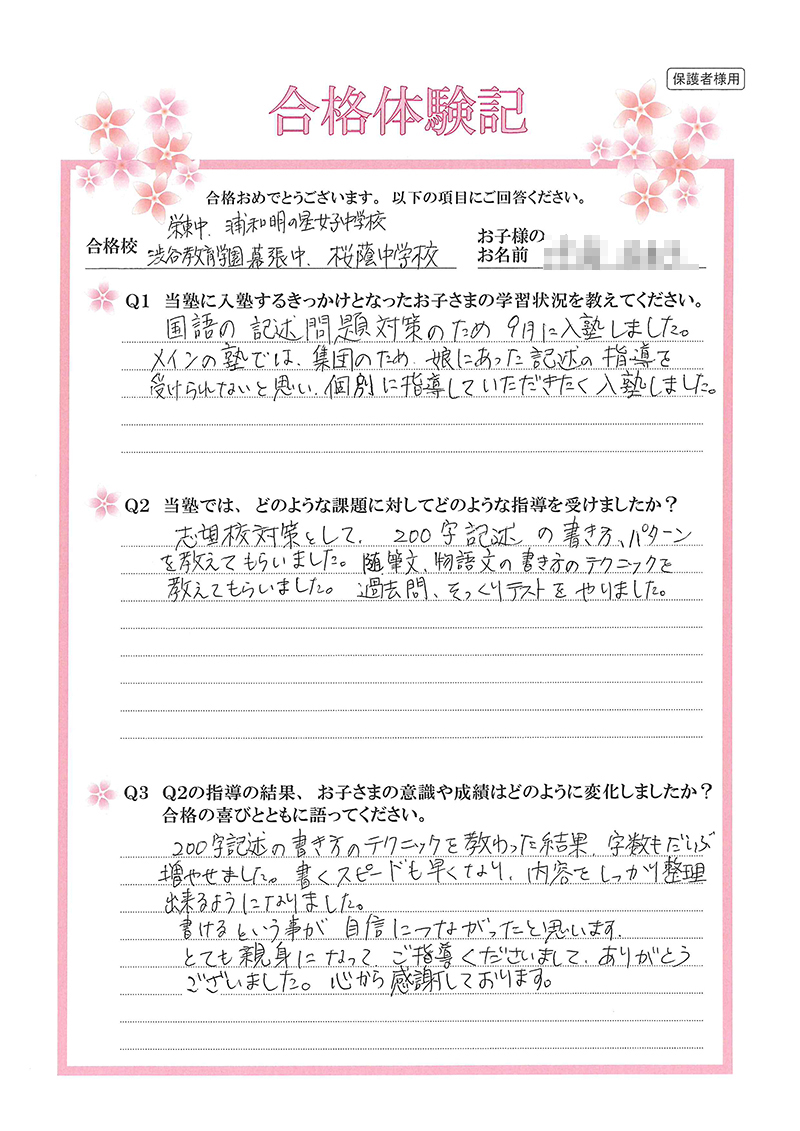 保護者様用
合格体験記
合格おめでとうございます。以下の項目にご回答ください。
栄東中、浦和明の星女子中学校
合格校 渋谷教育学園幕張中、桜蔭中学校
お子様の
お名前
Q1 当塾に入塾するきっかけとなったお子さまの学習状況を教えてください。
国語の記述問題対策のため9月に入塾しました。
メインの塾では、集団のため、娘にあった記述の指導を
受けられないと思い、個別に指導していただきたく入塾しました。
Q2 当塾では、どのような課題に対してどのような指導を受けましたか？
志望校対策として、200字記述の書き方、パターン
を教えてもらいました。随筆文、物語文の書き方のテクニックを
教えてもらいました。過去問、そっくりテストをやりました。
Q3 Q2の指導の結果、お子さまの意識や成績はどのように変化しましたか？
合格の喜びとともに語ってください。
200字記述の書き方のテクニックを教わった結果、字数もだいぶ
増やせました。書くスピードも早くなり、内容をしっかり整理
出来るようになりました。
書けるという事が自信につながったと思います。
とても親身になって、ご指導くださいまして、ありがとう
ございました。心から感謝しております。